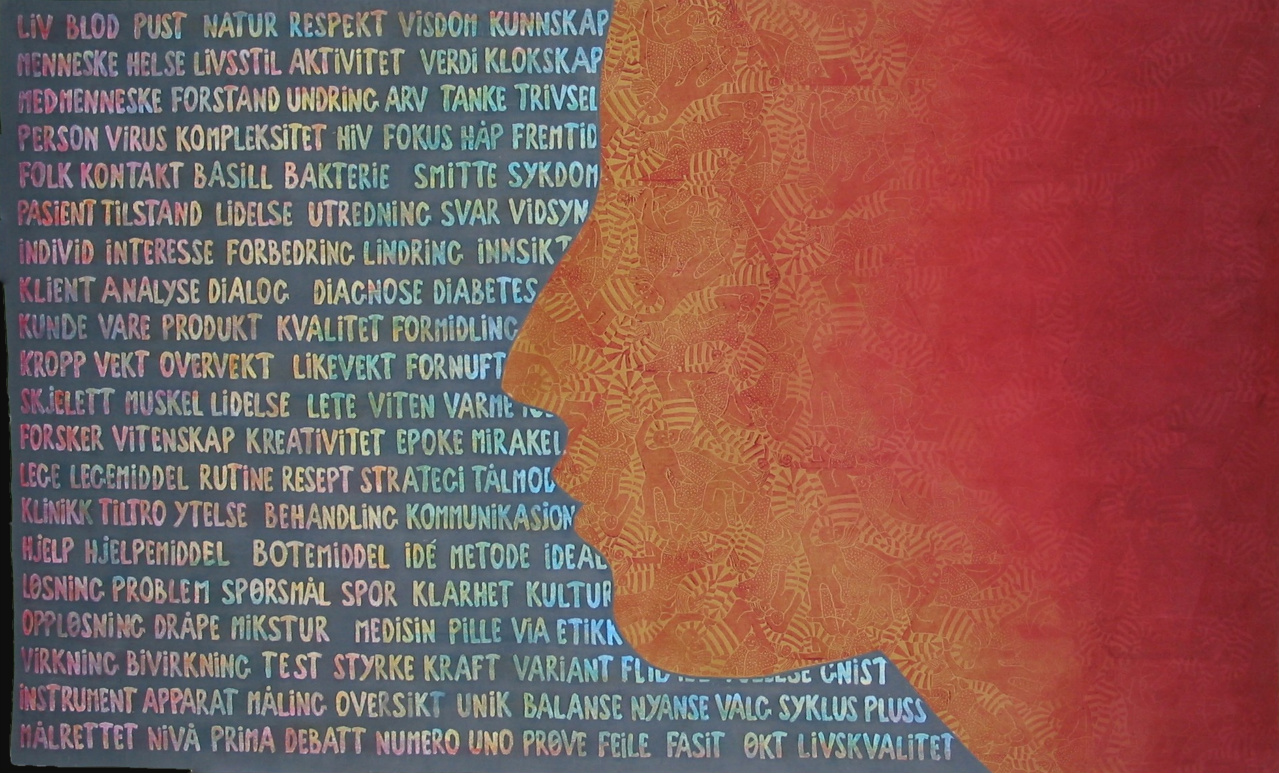 LIV BLOD PUST NATUR RESPEKT VISDOM KUNNSKAP
MENNESKE HELSE LIVSSTIL AKTIVITET VERDI KLOKSKAP
MEDMENNESKE FORSTAND UNDRING ARV TANKE TRIVSEL
PERSON VIRUS KOMPLEKSITET HIV FOKUS HÅP FREMTID
FOLK KONTAKT BASILL BAKTERIE SMITTE SYKDOM
PASIENT TILSTAND LIDELSE UTREDNING SVAR VIDSYN
INDIVID INTERESSE FORBEDRING LINDRING INNSIKT
KLIENT ANALYSE DIALOG DIAGNOSE DIABETES
KUNDE VARE PRODUKT KVALITET FORMIDLING
KROPP VEKT OVERVEKT LIKEVEKT FORNUFT
SKJELETT MUSKEL LIDELSE LETE VITEN VARME
FORSKER VITENSKAP KREATIVITET EPOKE MIRAKEL
LEGE LEGEMIDDEL RUTINE RESEPT STRATEGI TÅLMOD
KLINIKK TILTRO YTELSE BEHANDLING KOMMUNIKASJON
HJELP HJELPEMIDDEL BOTEMIDDEL IDÉ METODE IDEAL
LØSNING PROBLEM SPØRSMÅL SPOR KLARHET KULTUR
OPPLØSNING DRÅPE MIKSTUR MEDISIN PILLE VIA ETIKK
VIRKNING BIVIRKNING TEST STYRKE KRAFT VARIANT GNIST
INSTRUMENT APPARAT MÅLING OVERSIKT UNIK BALANSE NYANSE VALG SYKLUS PLUSS
MÅLRETTET NIVÅ PRIMA DEBATT NUMERO UNO PRØVE FEILE FASIT ØKT LIVSKVALITET